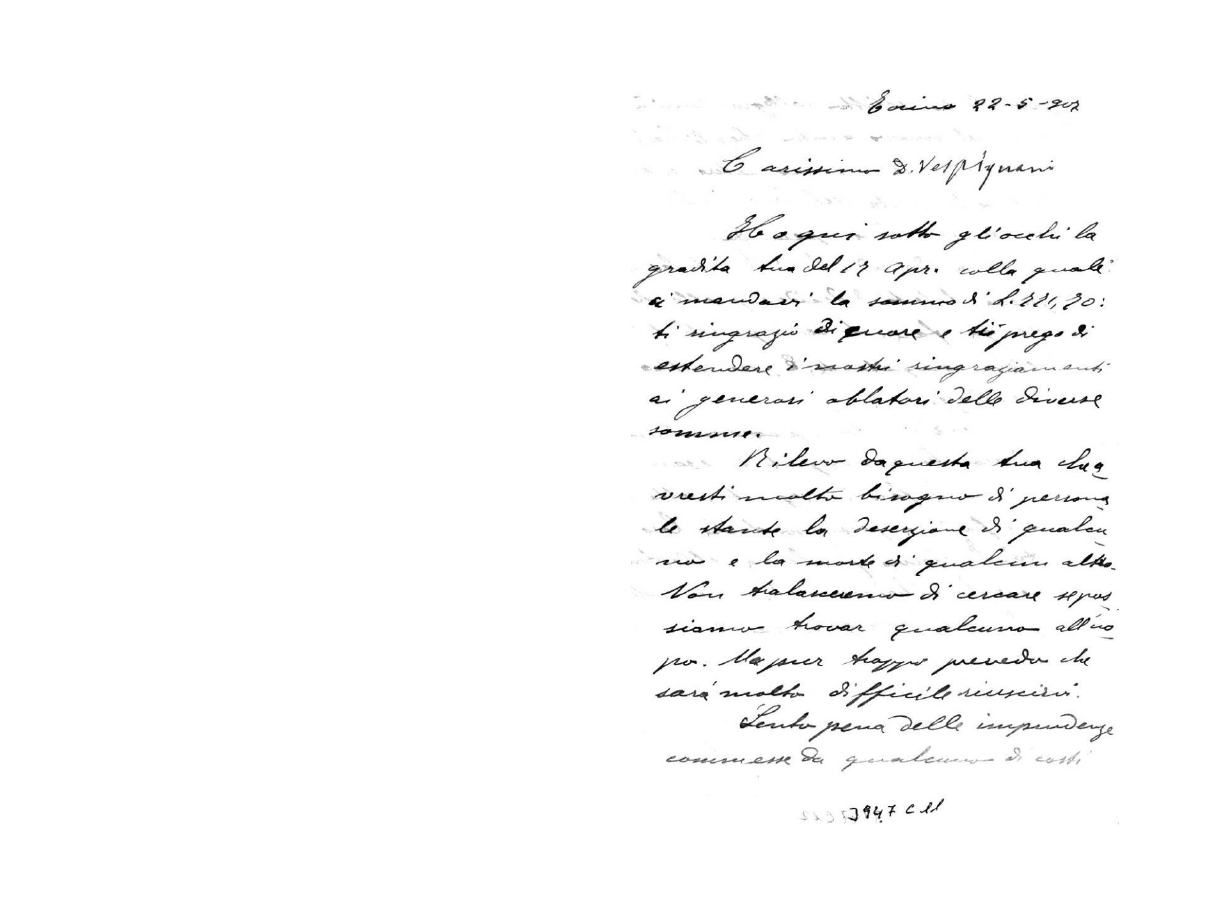 Torino 22-5-907
Carissimo D. Vespignani
Ho qui sotto gli occhi la
gradita tua del 17 Apr. colla quale
ci mandavi la somma di L. 221,70:
ti ringrazio di cuore e ti prego di
estendere i nostri ringraziamenti
ai generosi oblatori delle diverse
somme.
Rilevo da questa tua che a
vresti molto bisogno di persona
le stante la deserzione di qualcu
no e la morte di qualcun altro.
Non tralasceremo di cercare se pos
siamo trovar qualcuno all'uo
po. Ma pur troppo prevedo che
sarà molto difficile riuscirvi.
Sento pena delle imprudenze
commesse da qualcuno di costì
3947 C 11